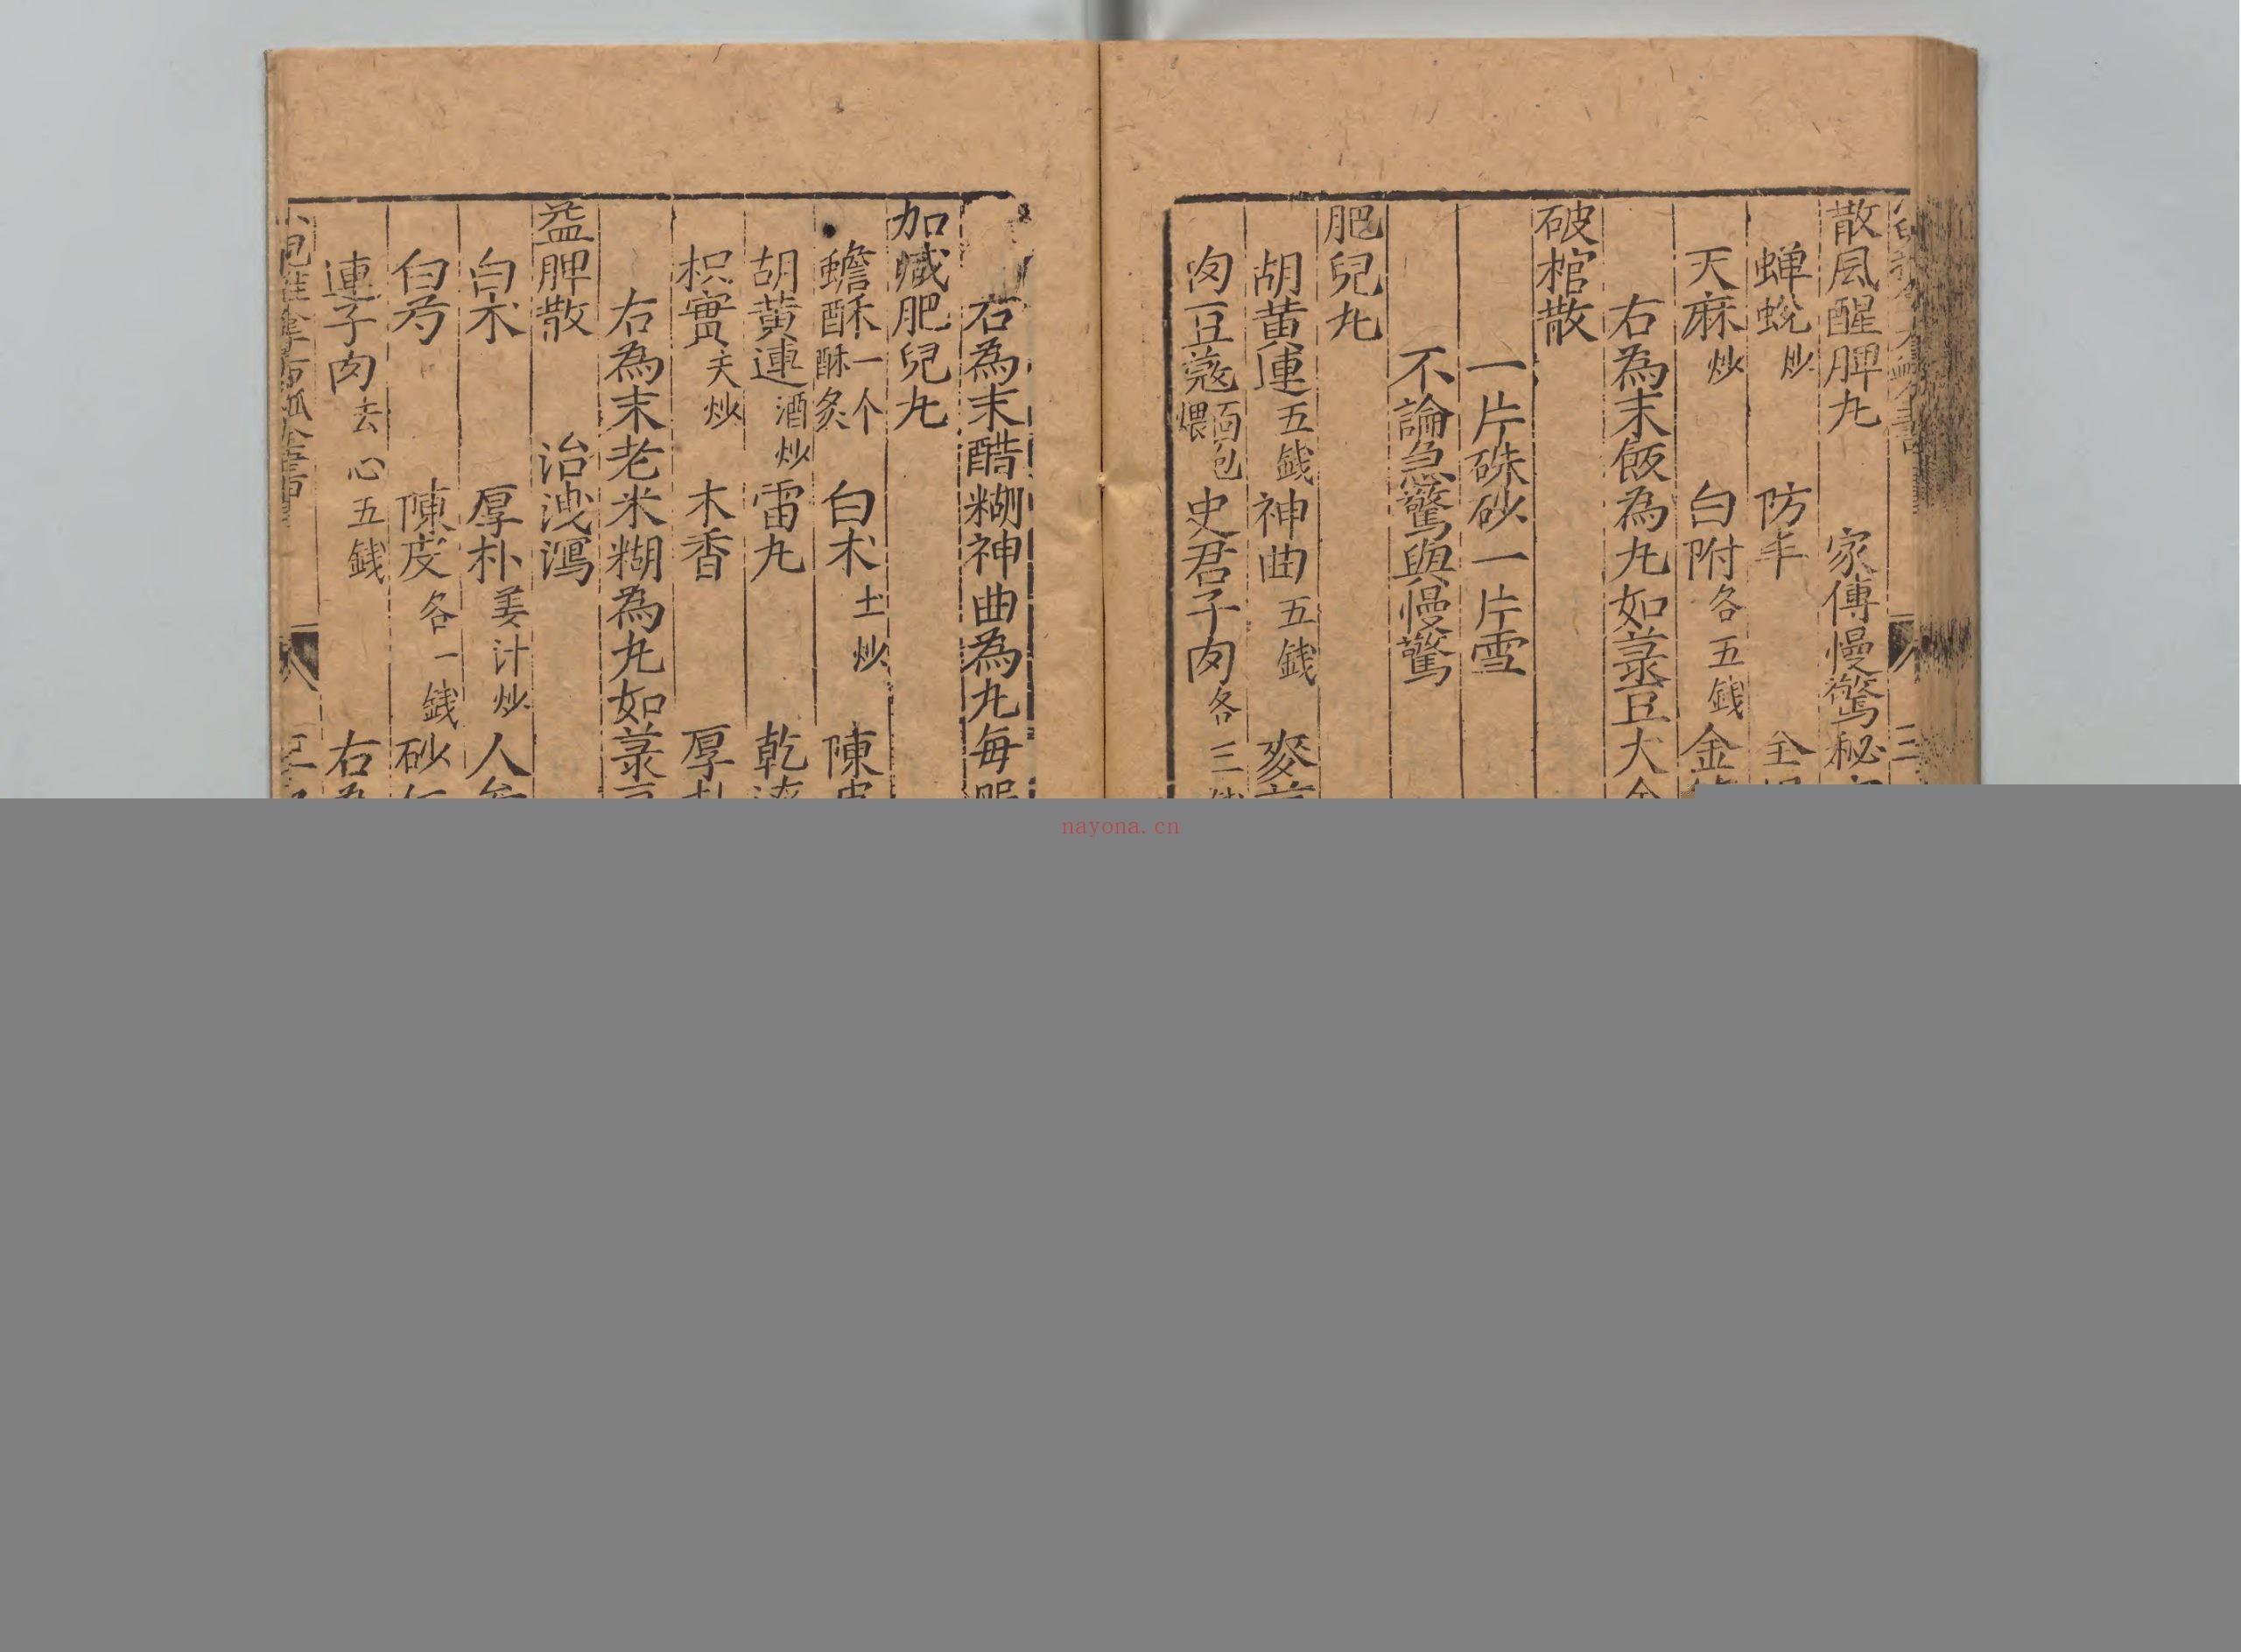 散風醒脾丸　家傳慢驚秘
蝉蛻炒　防手　全
天麻炒　白附各五錢　金
右為末飯為丸如菉豆大
破棺散
一片硃砂一片雪
不論急驚與慢驚
肥兒丸
胡黄連五錢　神曲五錢　麥
肉豆蔻面包煨　史君子肉各三
右為末醋糊神曲為丸每
加减肥兒丸
蟾酥一个酥炙　白术土炒　陳
胡黄連酒炒　雷丸　乾
枳實夫炒　木香　厚
右為末老米糊為丸如菉
益脾散　治洩瀉
白术　厚朴姜汁炒　人
白芍　陳皮各一錢　砂
連子肉去心五錢　右
nayona.cn